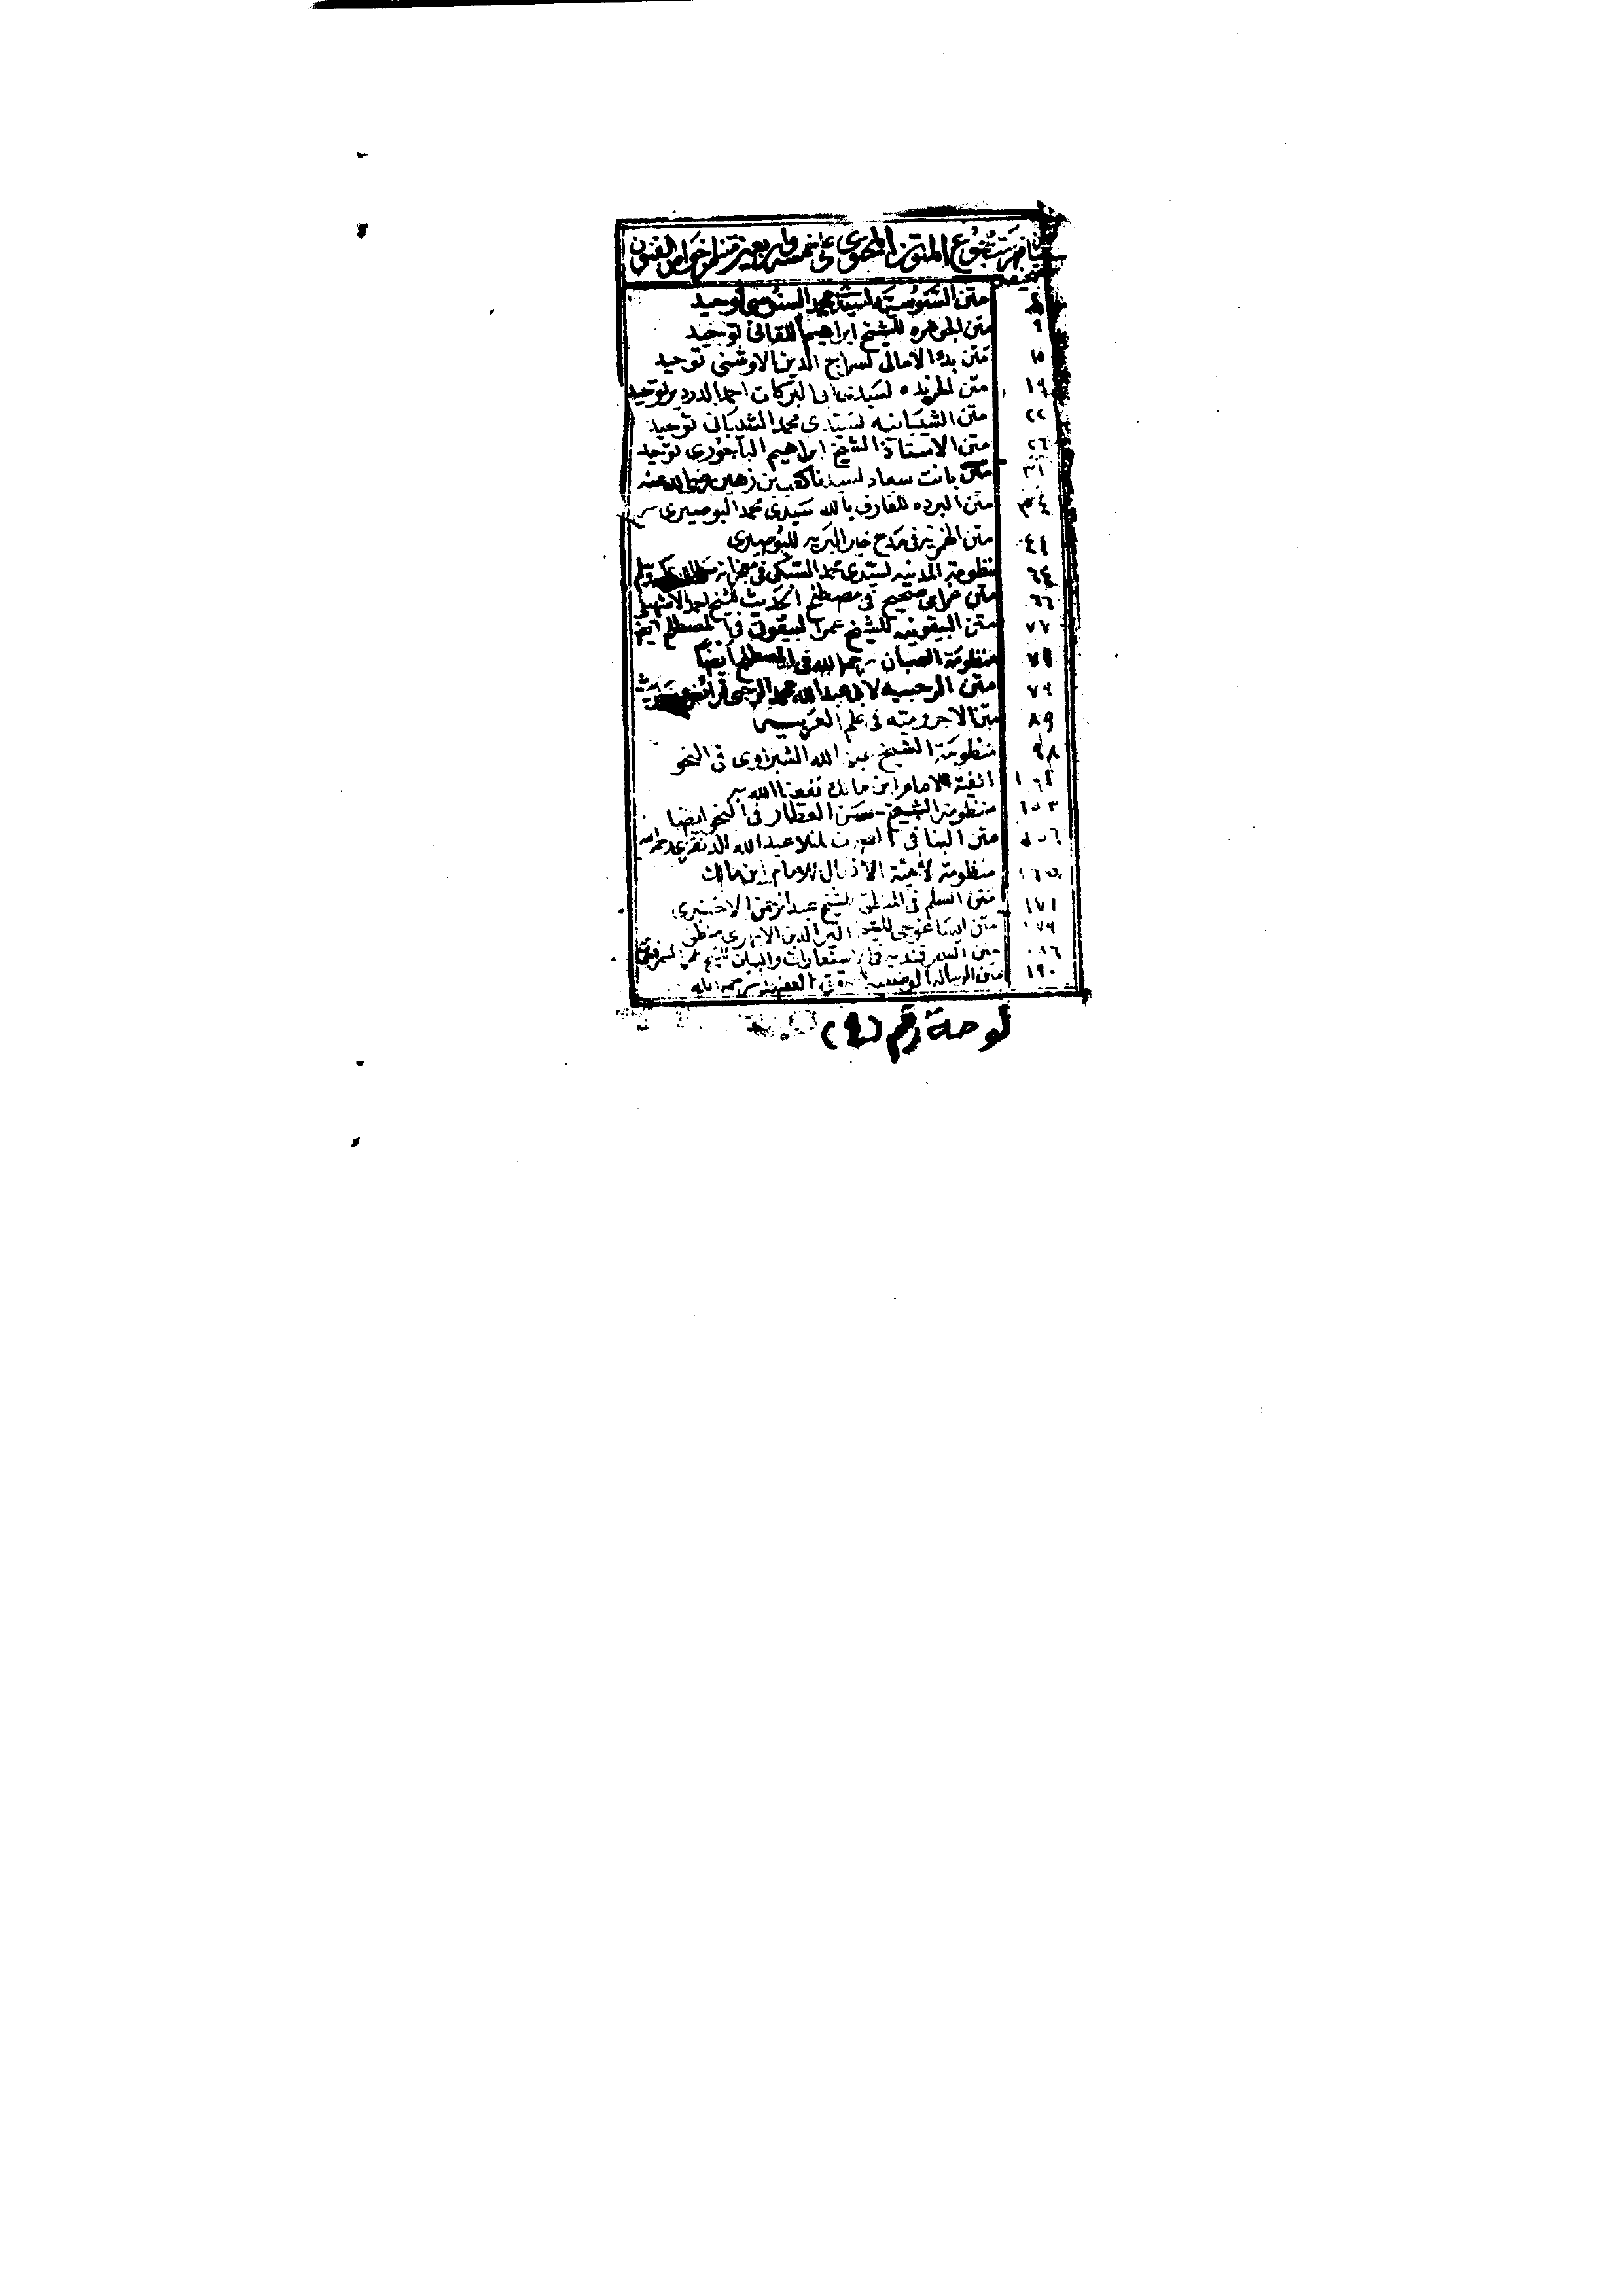 فهرست مجموع المتون المحتوى على خمسه واربعين متنا من خواص الفنون
صحيفه
متن السنوسيه لسيدى محمد السنوسى توحيد
٩ متن الجوهره للشيخ ابراهيم اللقانى توحيد
١٥ متن بدء الامالى لسراج الدين الاوشى توحيد
١٩ متن الخريده لسيدى ابى البركات احمد الدردير توحيد
٢٢ متن الشيبانيه لسيدى محمد الشيبانى توحيد
٢٦ متن الاستاذ الشيخ ابراهيم الباجورى توحيد
٣١ متن بانت سعاد لسيدنا كعب بن زهير رضى الله عنه
٣٤ متن البرده للعارف بالله سيدى محمد البوصيرى
٤١ متن الهمزيه فى مدح خير البريه للبوصيرى
٦٤ منظومة المدنيه لسيدى محمد السبكى فى معجزاته
٦٦ متن غرامى صحيح فى مصطلح الحديث للشيخ احمد الاشبيلى
٧٧ متن البيقونيه للشيخ عمر البيقونى فى المصطلح ايضا
منظومة الصبان رحمه الله فى المصطلح ايضا
٧٩ متن الرحبيه لابى عبد الله محمد الرحبى فرائض
٨٩ متن الاجروميه فى علم العربيه
٩٨ منظومة الشيخ عبد الله الشبراوى فى النحو
الفية الامام ابن مالك نفعنا الله به
١٥٣ منظومة الشيخ حسن العطار فى النحو ايضا
١٥٦ متن البنا فى الصرف لملا عبد الله الدنقزى رحمه الله
١٦٥ منظومة لامية الافعال للامام ابن مالك
١٧١ متن السلم فى المنطق للشيخ عبد الرحمن الاخضرى
١٧٩ متن ايساغوجى للشيخ اثير الدين الابهرى منطق
١٨٦ متن السمرقنديه فى الاستعارات والبيان للشيخ السمرقندى
١٩٠ متن الرساله الوضعيه رحمه الله
لوحة رقم (٩)